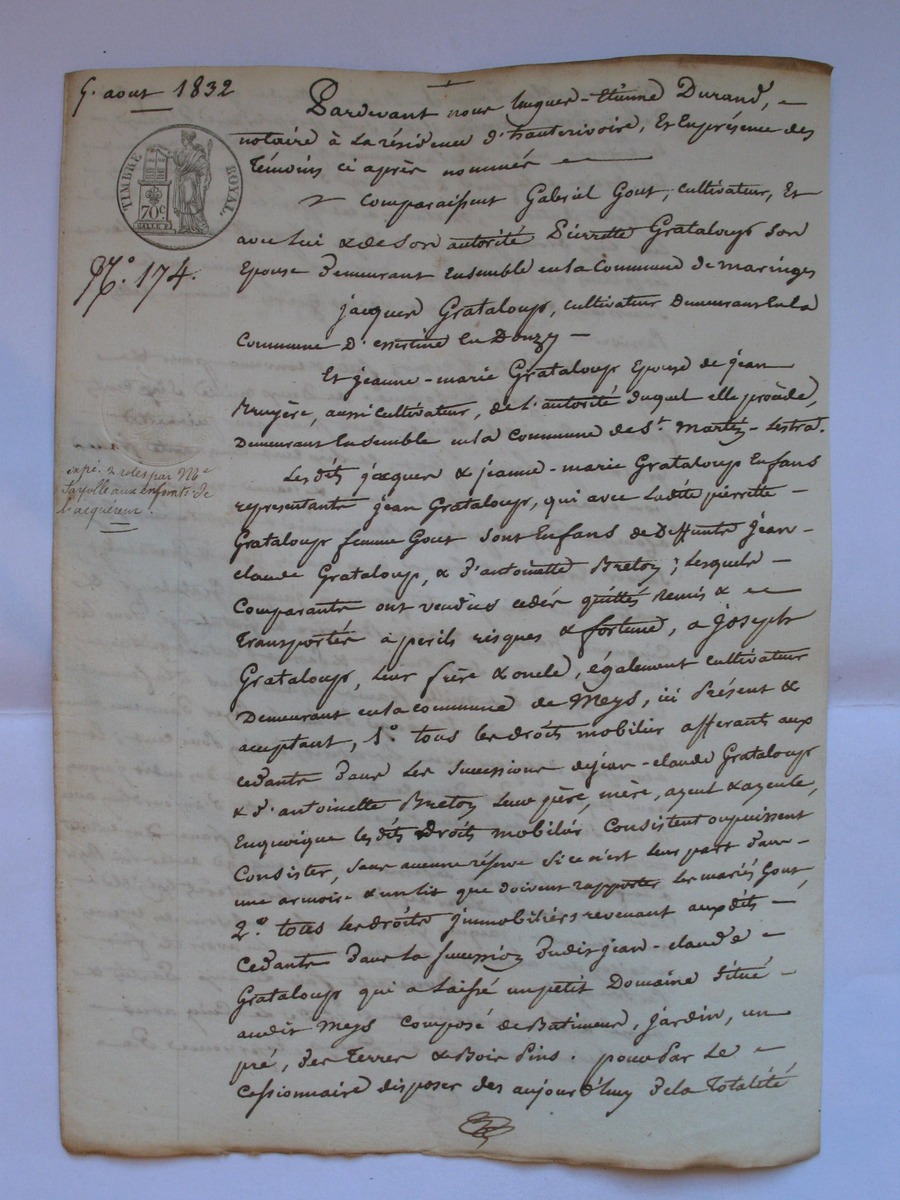 5. aout 1832
TIMBRE ROYAL
70c
N.° 174.
expé. 2 roles par Me
fayolle aux enfants de
l'acquéreur.
Pardevant nous hugues-Etienne Durand,
notaire à la résidence d'hauterivoire, Et En présence des
témoins ci après nommés
Comparaissent Gabriel Gout, cultivateur, Et
avec lui & de son autorité Pierrette Grataloup son
Epouse Demeurant Ensemble en la Commune de maringes
jacques Grataloup, cultivateur Demeurant En la
Commune D'essertine En Donzy
Et jeanne-marie Grataloup Epouse de jean
Bruyère, aussi cultivateur, de l'autorité duquel elle procède,
Demeurant Ensemble en la commune de St. Martin-Lestra.
Lesdits jacques & jeanne-marie Grataloup Enfans
représentants jean Grataloup, qui avec Ladite pierrette
Grataloup femme Gout sont Enfans de Deffunts jean-
claude Grataloup, & d'antoinette Breton; Lesquels
Comparants ont vendus cédés quittés Remis &
Transportés à perils risques & fortune, a joseph
Grataloup, leur frère & oncle, également cultivateur
Demeurant en la commune de Meys, ici Présent &
acceptant, 1.° tous les droits mobilier afferants aux
cedants dans les successions de jean-claude Grataloup
& d'antoinette Breton leurs père, mère, ayeul & ayeule,
En quoi que lesdits Droits mobiliés Consistent ou puissent
Consister, sans aucune réserve si ce n'est leur part dans
une armoire & un lit que doivent rapporter les mariés Gout,
2.° tous les droits jmmobiliérs revenant auxdits
Cedants dans la succession dudit jean-claude
Grataloup qui a laissé un petit Domaine situé
audit Meys composé de Batimens, jardin, un
pré, des Terres & Bois Pins. pour par Le
Cessionnaire disposer des aujourd'huy de la Totalité